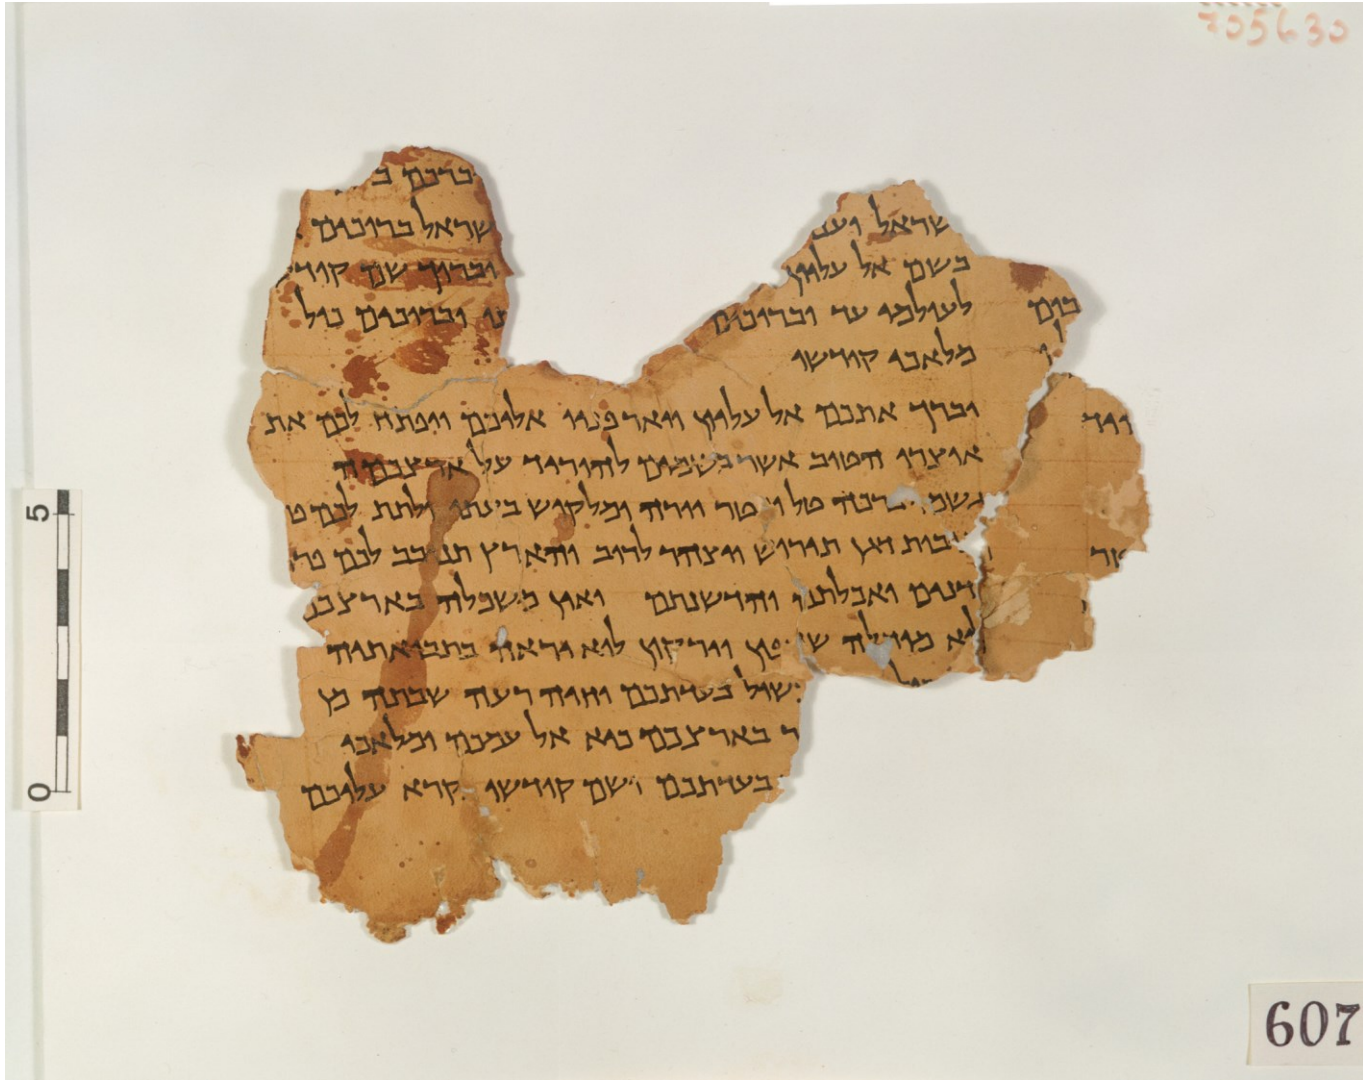 ברכם ב
שראל וענ שראל ברוכים
בשם אל עליון וברוך שם קודש
כים לעולמי עד וברוכים וברוכים כול
מלאכי קודשו
יברך אתכם אל עליון ויאר פניו אליכם ויפתח לכם את
אוצרו הטוב אשר בשמים להוריד על ארצכמה
גשמי ברכה טל ומטר יורה ומלקוש בעתו ולתת לכם
בות דגן תירוש ויצהר לרוב והארץ תנובב לכם פרי
דנים ואכלתם והדשנתם ואין משכלה בארצכם
לא מוחלה שדפון וירקון לוא יראה בתבואתיה
שול בעדתכם וחיה רעה שבתה מן
ר בארצכם כיא אל עמכם ומלאכי
בעדתכם ושם קודשו נקרא עליכם
705630
5
0
607